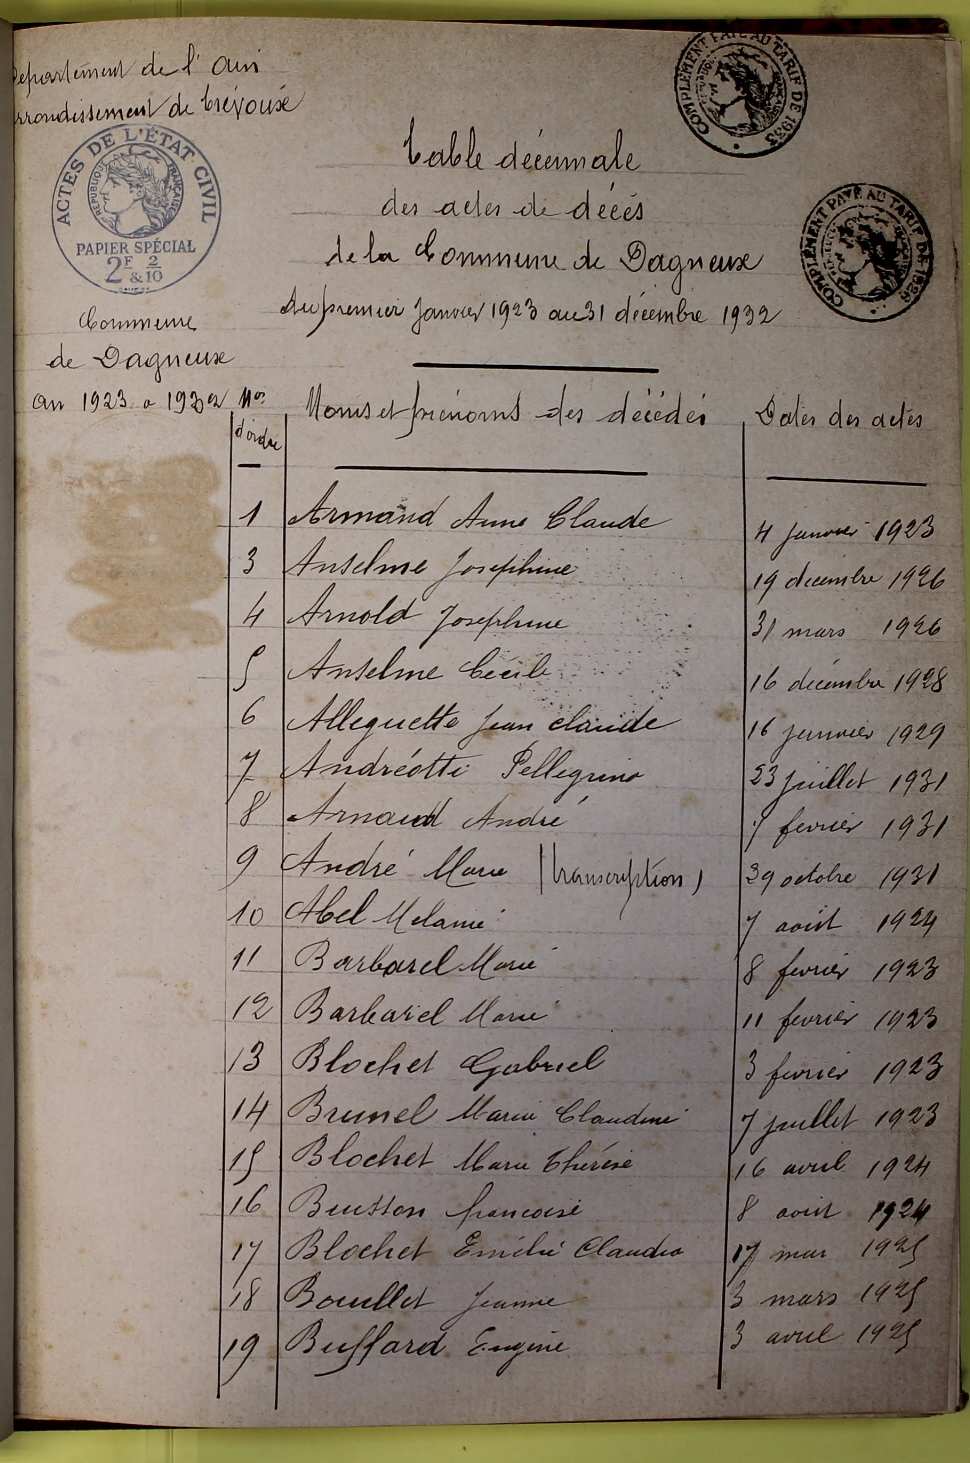 Département de l'Ain
arrondissement de Trévoux
ACTES DE L'ÉTAT CIVIL
RÉPUBLIQUE FRANÇAISE
PAPIER SPÉCIAL
2F 2/10
&
COMPLÉMENT PAYÉ AU TARIF DE 1933
COMPLÉMENT PAYÉ AU TARIF DE 1926
Table décennale
des actes de décès
de la Commune de Dagneux
du premier Janvier 1923 au 31 décembre 1932
Commune
de Dagneux
an 1923 a 1932
Nos d'ordre Noms et prénoms des décédés Dates des actes
1 Armand Anne Claude 4 janvier 1923
3 Anselme Josephine 19 decembre 1926
4 Arnold Josephine 31 mars 1926
5 Anselme Cécile 16 décembre 1928
6 Alleguette Jean claude 16 janvier 1929
7 Andréotti Pellegrino 23 juillet 1931
8 Arnaud André 7 fevrier 1931
9 André Marie (transcription) 29 octobre 1931
10 Abel Melanie 7 août 1924
11 Barbarel Marie 8 fevrier 1923
12 Barbarel Marie 11 fevrier 1923
13 Blochet Gabriel 3 fevrier 1923
14 Brunel Marie Claudine 7 juillet 1923
15 Blochet Marie Thérèse 16 avril 1924
16 Buisson francoise 8 aout 1924
17 Blochet Emélie Claudia 17 mars 1925
18 Bouillet Jeanne 3 mars 1925
19 Buffard Eugène 3 avril 1925